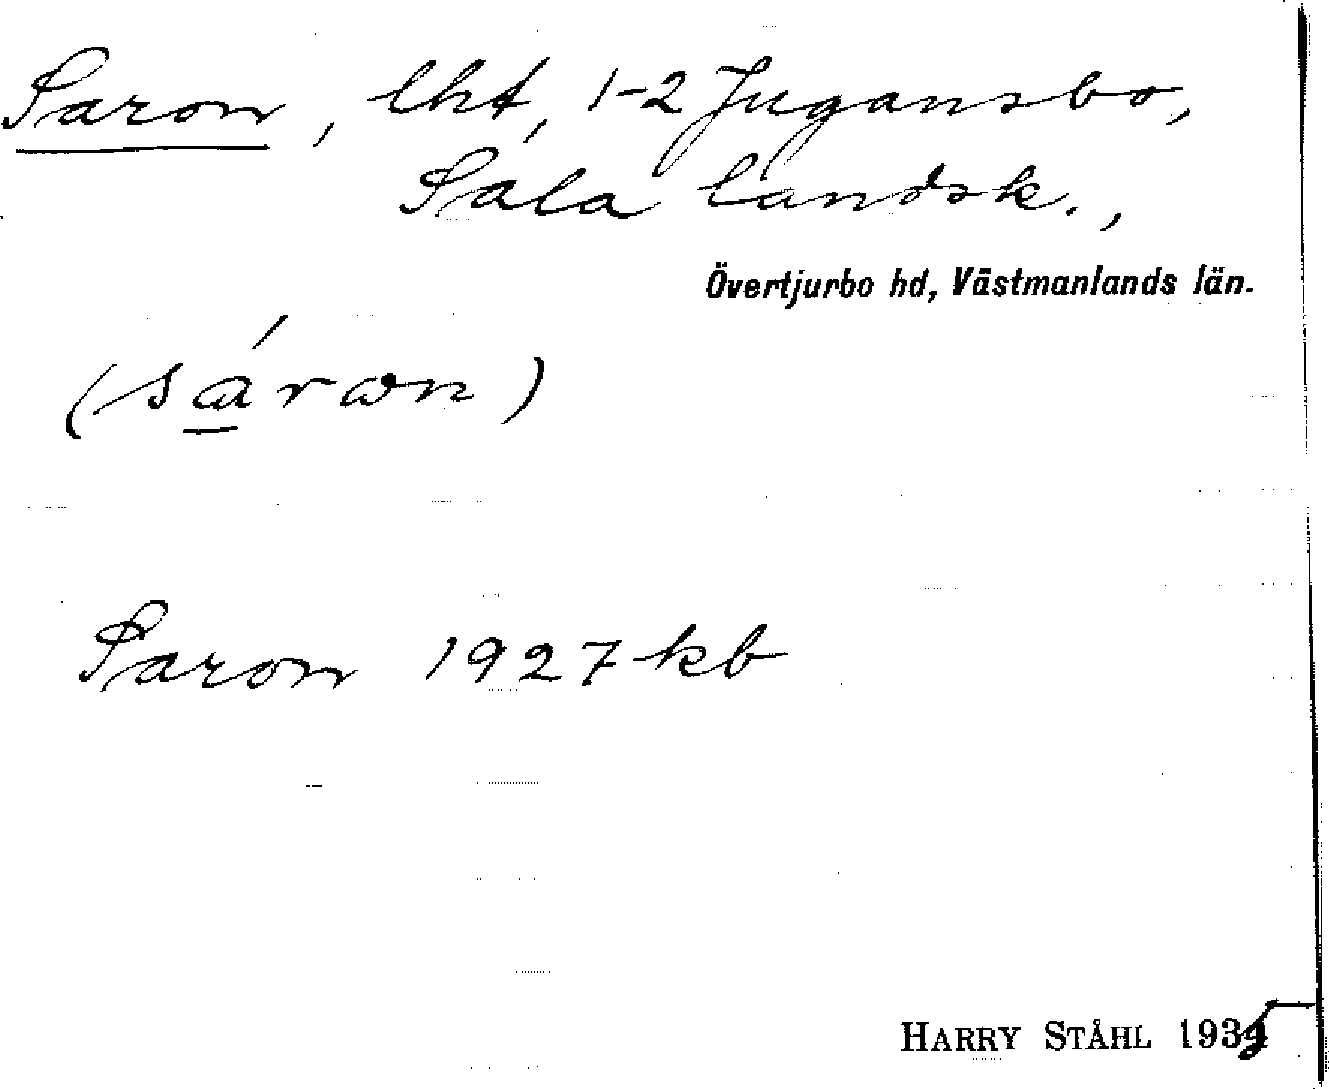 Saron, lht, 1-2 Jugansbo,
Sala landsk.,
Övertjurbo hd, Västmanlands län.
(sáron)
Saron 1927 kb
HARRY STÅHL 1935